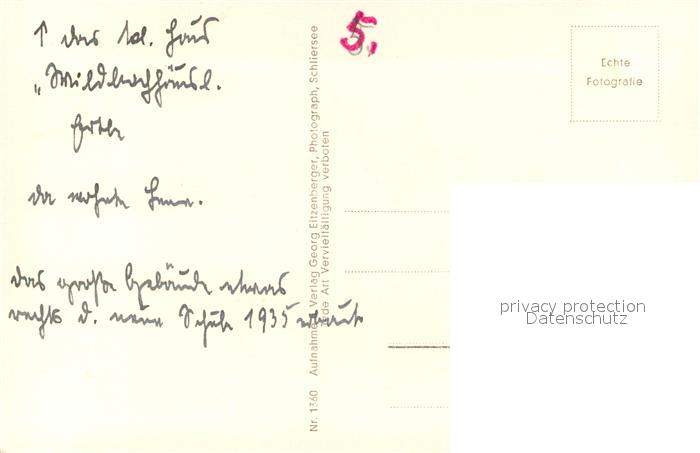 ↑ das kl. Haus
„Wildbachhäusl.
da wohnte
das große Gebäude etwas
rechts d. neue Schule 1935 erbaut
5.
Nr. 1360 Aufnahme u. Verlag Georg Eitzenberger, Photograph, Schliersee
Jede Art Vervielfältigung verboten
Echte
Fotografie
privacy protection
Datenschutz